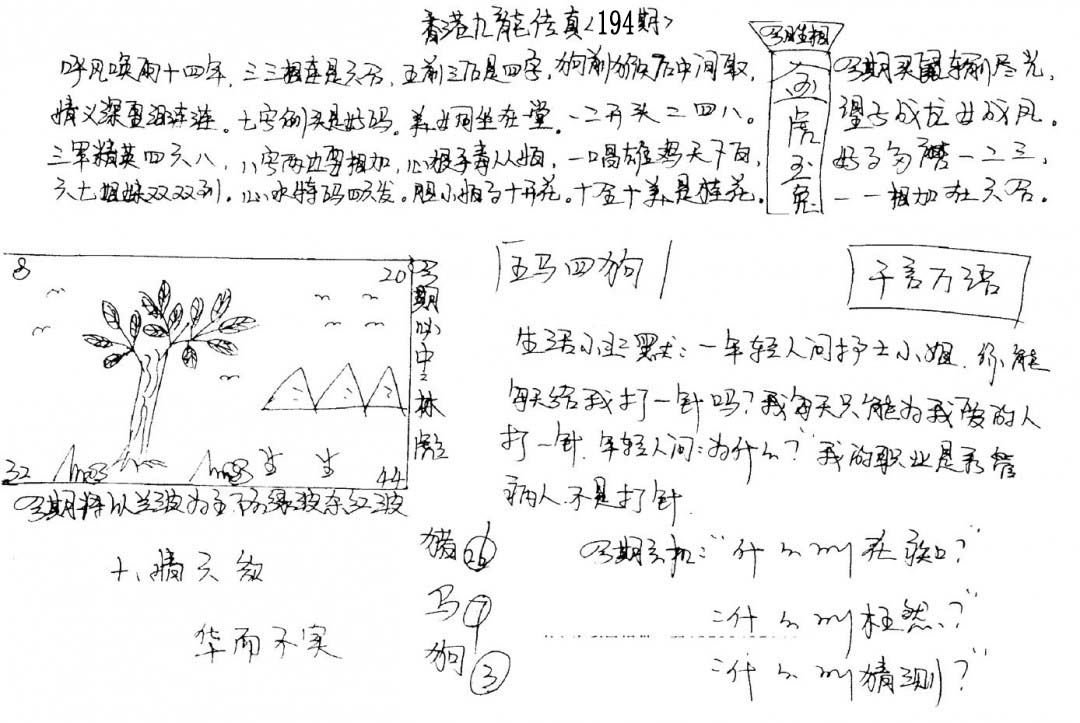 香港九龍传真<194期>
呼风唤雨十四年,三三相连是六合,五前三后是四字,狗前猴后中间取,
情义深重泪涟涟。七字例头是好码。美女同坐在堂。一二开头二四八。
三军精英四六八,八字两边要相加,心狠手毒从娘,一唱雄鸡天下白,
六七姐妹双双列。心水特码四六发。胆小十开花。十全十美是桂花。
今期生相
金
虎
玉
兔
今期买鼠输尽光,
望子成龙女成凤。
好事多磨一二三,
一一相加在六合。
8
20
32
44
今期必中三林彪
今期特以兰波为主不防绿波杂红波
五马四狗
千言万语
生活小幽默:一年轻人问护士小姐.你能
每天给我打一针吗?我每天只能为我爱的人
打一针.年轻人问:为什么?"我的职业是看管
病人.不是打针.
十八晴天数
华而不实
猪 26
马 7
狗 3
今期玄机:"什么叫在?"
"什么叫枉然?"
"什么叫猜测?"